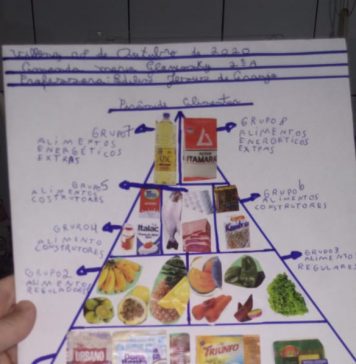 de Outubro de 2020
maria 2ºA
Professora:
Pirâmide Alimentar
GRUPO 7
ALIMENTOS
ENERGÉTICOS
EXTRAS
GRUPO 8
ALIMENTOS
ENERGETICOS
EXTRAS
ITAMARA
GRUPO 5
ALIMENTOS
COSTRUTORES
GRUPO 6
ALIMENTOS
CONSTRUTORES
GRUPO 4
ALIMENTO
CONSTRUTORES
Italac
GRUPO 3
ALIMENTO
REGULARES
GRUPO 2
ALIMENTOS
REGULADORES
URBANO
TRIUNFO